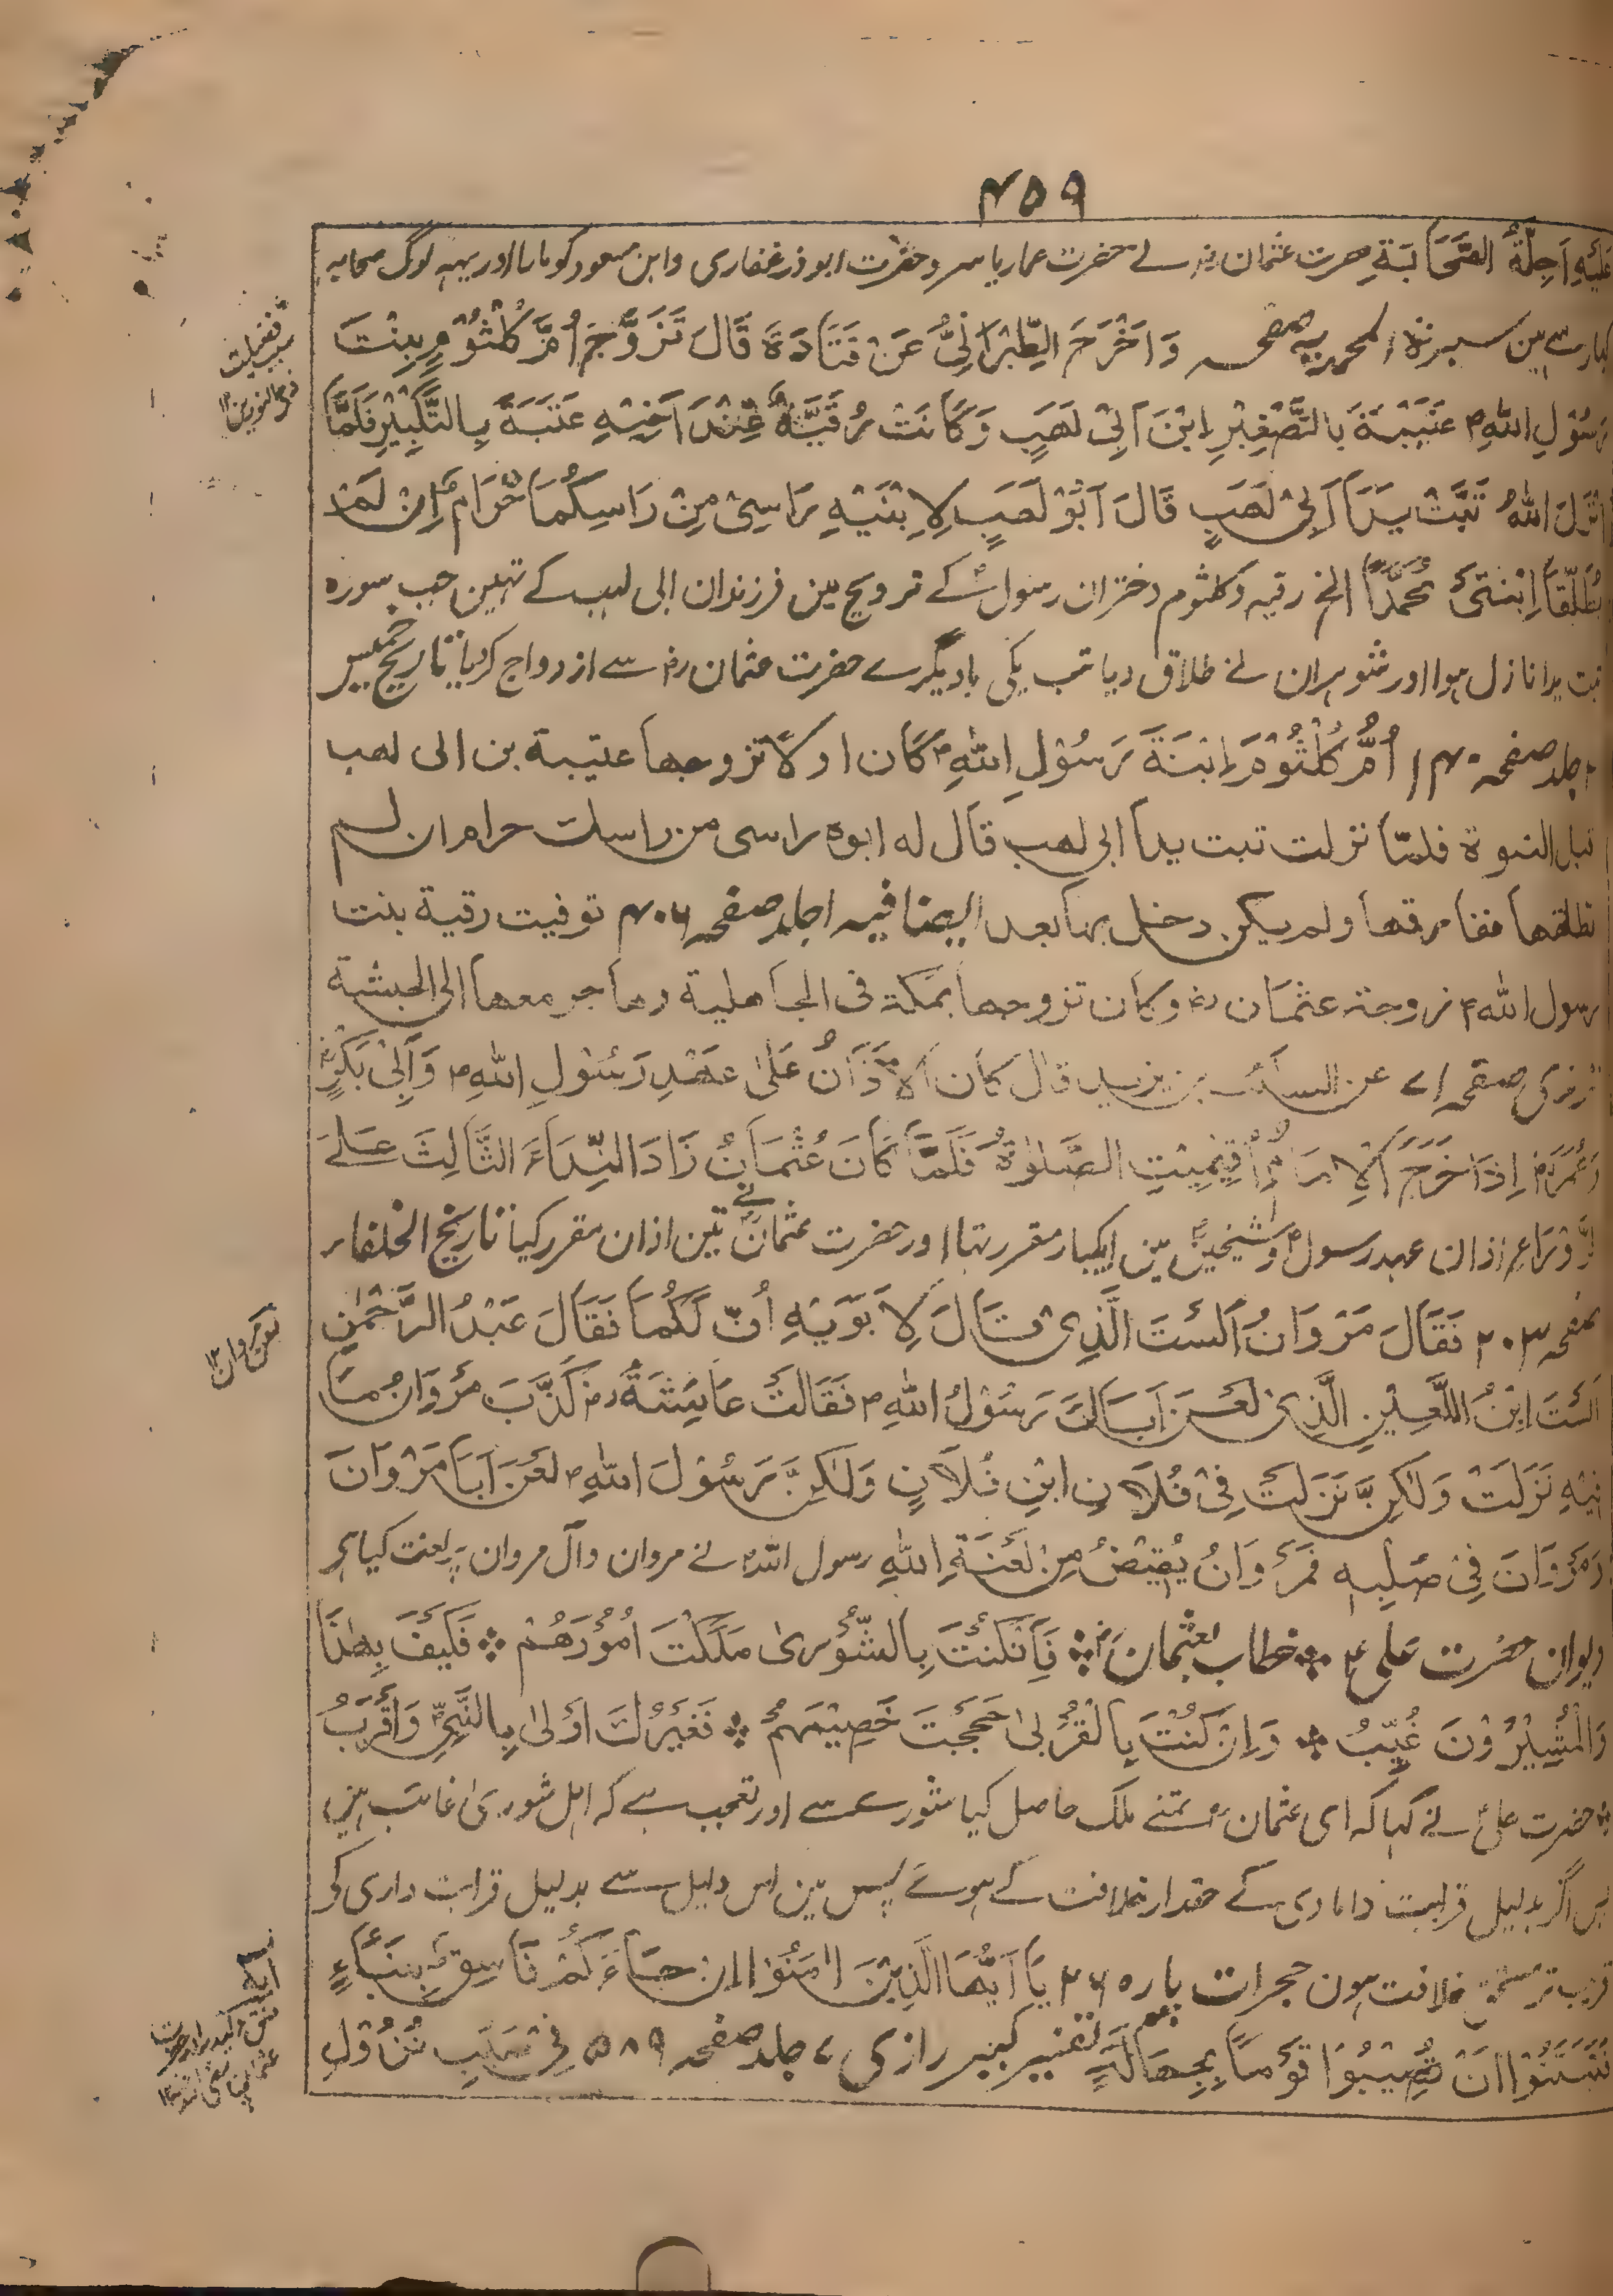 ۴۵۹
عَلَيْهِ اَجِلَّةُ الصَّحَابَةِ حضرت عثمان رضہ نے حضرت عمار یاسر و حضرت ابوذر غفاری و ابن مسعود کو مارا اور یہہ لوگ صحابہ
کبار سے ہین سیرۃ المحمدیہ صفحہ وَاَخْرَجَ الطِّبْرَانِيُّ عَنْ قَتَادَةَ قَالَ تَزَوَّجَ اُمَّ كُلْثُوْمٍ بِنْتَ
رَسُوْلِ اللهِ ۴ عُتَيْبَةَ بِالتَّصْغِيْرِ ابْنَ اَبِىْ لَهَبٍ وَكَانَتْ رُقَيَّةُ عِنْدَ اَخِيْهِ عَتَبَةَ بِالتَّكْبِيْرِ فَلَمَّا
اَنْزَلَ اللهُ تَبَّتْ يَدَا اَبِىْ لَهَبٍ قَالَ اَبُوْ لَهَبٍ لِاِبْنَيْهِ رَاسِىْ مِنْ رَاسِكُمَا حَرَامٌ اِنْ لَمْ
تُطَلِّقَا اِبْنَتَىْ مُحَمَّدٍ الخ رقیہ و کلثوم دختران رسول کے تزویج مین فرزندان ابی لہب کے تہین جب سورہ
تبت یدا نازل ہوا اور شوہران نے طلاق دیا تب یکی بادیگرے حضرت عثمان رضہ سے ازدواج کردیا تاریخ خمیس
جلد صفحہ اُمُّ كُلْثُوْمَ اِبْنَةَ رَسُوْلِ اللهِ ۴ كَانَ اولًا تزوجها عتيبة بن ابى لهب
قبل النبوة فلمّا نزلت تبت يدا ابى لهب قال له ابوه راسى من راسك حرام ان لم
تطلقها ففارقها ولم يكن دخل بها بعد ایضا فیہ ا جلد صفحہ ۴۰۶ توفيت رقية بنت
رسول الله ۴ زوجة عثمان رضہ وكان تزوجها بمكة فى الجاهلية وهاجر معها الى الحبشة
ترمذی صفحہ عن السائب بن يزيد قال كان الْاَذَانُ عَلىٰ عَهْدِ رَسُوْلِ اللهِ ۴ وَاَبِىْ بَكْرٍ
وَعُمَرَ اِذَا خَرَجَ الْاِمَامُ اُقِيْمَتِ الصَّلوٰةُ فَلَمَّا كَانَ عُثْمَانُ زَادَ النِّدَاءَ الثَّالِثَ عَلَىٰ
الزَّوْرَاءِ اذان عہد رسول و شیخین مین ایکبار مقرر تہا اور حضرت عثمان نے تین اذان مقرر کیا تاریخ الخلفاء
صفحہ ۲۰۳ فَقَالَ مَرْوَانُ اَلَسْتَ الَّذِىْ قَالَ لِاَبَوَيْهِ اُفٍّ لَكُمَا فَقَالَ عَبْدُ الرَّحْمٰنِ
اَلَسْتَ ابْنُ اللَّعِيْنِ الَّذِىْ لَعَنَ اَبَاكَ رَسُوْلُ اللهِ ۴ فَقَالَتْ عَايِشَةُ رضہ كَذَّبَ مَرْوَانُ مَا
فِيْهِ نَزَلَتْ وَلٰكِنْ نَزَلَتْ فِىْ فُلَانِ ابْنِ فُلَانٍ وَلٰكِنَّ رَسُوْلَ اللهِ ۴ لَعَنَ اَبَا مَرْوَانَ
وَمَرْوَانَ فِىْ صُلْبِهٖ فَمَرْوَانُ يُقِيْضُ مِنْ لَعْنَةِ اللهِ رسول اللہ نے مروان و آل مروان پر لعنت کیا ہی
دیوان حضرت علی ۴ ؞ خطاب بعثمان ؞ فَاِنْ كُنْتَ بِالشُّوْرىٰ مَلَكْتَ اُمُوْرَهُمْ ؞ فَكَيْفَ بِهٰذَا
وَالْمُشِيْرُوْنَ غُيَّبُ ؞ وَاِنْ كُنْتَ بِالْقُرْبىٰ حَجَجْتَ خَصِيْمَهُمْ ؞ فَغَيْرُكَ اَوْلىٰ بِالنَّبِيِّ وَاَقْرَبُ
؞ حضرت علی نے کہا کہ ای عثمان تمنے ملک حاصل کیا شورے سے اور تعجب ہے کہ اہل شوریٰ غائب ہین
پس اگر بدلیل قرابت دامادی کے حقدار خلافت کے ہوئے پس مین اس دلیل سے بدلیل قرابت داری کی
قریب تر مستحق خلافت ہون حجرات پارہ ۲۶ يَا اَيُّهَا الَّذِيْنَ اٰمَنُوْا اِنْ جَاءَكُمْ فَاسِقٌ بِنَبَاءٍ
فَتَبَيَّنُوْا اَنْ تُصِيْبُوْا قَوْمًا بِجَهَالَةٍ تفسیر کبیر رازی ۷ جلد صفحہ ۵۸۹ فِىْ سَبَبِ نُزُوْلِ
فضیلت
ذی النورین ۱۲
لعن مروان ۱۲